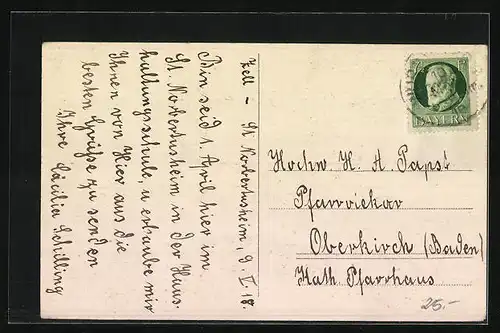 Zell - St. Norbertusheim, 9. V. 18.
Bin seid 1. April hier im
St. Norbertusheim in der Haus-
haltungsschule, u. erlaube mir
Ihnen von Hier aus die
besten Grüße zu senden
Ihre Cäcilia Schilling
BAYERN
Hochw. H. A. Papst
Pfarrvickar
Oberkirch (Baden)
Kath. Pfarrhaus
25.-